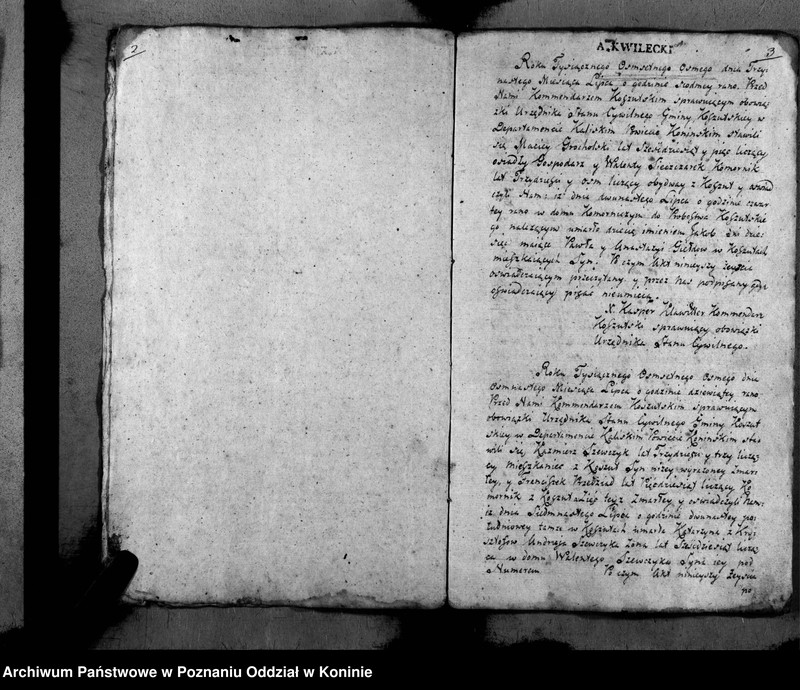 2
A. KWILECKI
3
Roku Tysiącznego Osmsetnego Osmego dnia Trzy-
nastego Miesiąca Lipca o godzinie siodmey rano. Przed
Nami Kommendarzem Koszutskim sprawuiącym obowią-
zki Urzędnika Stanu Cywilnego Gminy Koszutskiey w
Departamencie Kaliskim Powiecie Konińskim stawili
się Maciey Grocholski lat Sześćdziesiąt y pięć liczący
osiadły Gospodarz y Walenty Komornik
lat Trzydzieści y osm liczący obydway z Koszut y
czyli Nam, iż dnia dwunastego Lipca o godzinie czwar-
tey rano w domu Komorniczym do Probostwa Koszutskie-
go należącym umarło dziecię imieniem Jakob dzie-
sięć maiące Pawła y Anastazyi w Koszutach
mieszkaiących Syn. Po czym Akt ninieyszy Zeyściu
oświadczaiącym przeczytany y przez nas podpisany gdyż
oświadczaiący pisać nieumieią.
X. Kasper Klawitter Kommendarz
Koszutski sprawuiący obowiązki
Urzędnika Stanu Cywilnego.
Roku Tysiącznego Osmsetnego Osmego dnia
Osmnastego Miesiąca Lipca o godzinie dziewiątey rano
Przed Nami Kommendarzem Koszutskim sprawuiącym
obowiązki Urzędnika Stanu Cywilnego Gminy Koszut-
skiey w Departamencie Kaliskim Powiecie Konińskim sta-
wili się, Kazimierz Szewczyk lat Trzydzieści y trzy liczą-
cy mieszkaniec z Koszut Syn niżey wyrażoney Zmar-
łey, y Franciszek lat Pięćdziesiąt liczący, Ko-
mornik z Koszut teyż Zmarłey y oświadczyli Nam,
iż dnia Siedmnastego Lipca o godzinie dwunastey po-
łudniowey tamże w Koszutach umarła Katarzyna z Krzy-
sztofow Andrzeja Szewczyka Żona lat Sześćdziesiąt liczą-
ca w domu Walentego Szewczyka Syna jey pod
Numerem Po czym Akt ninieyszy Zeyścia
po
Archiwum Państwowe w Poznaniu Oddział w Koninie